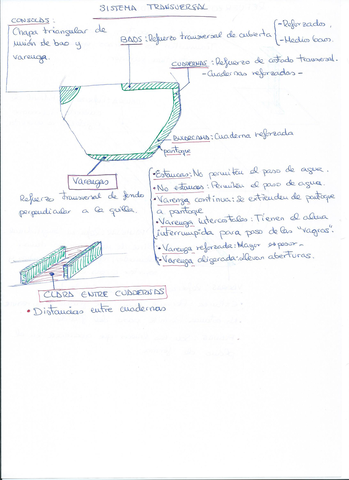 SISTEMA TRANSVERSAL
CONSOLAS:
Chapa triangular de
unión de bao y
varenga.
BAOS: Refuerzo transversal de cubierta
- Reforzados.
- Medio baos.
CUADERNAS: Refuerzo de costado transversal.
- Cuadernas reforzadas -
BULARCAMA: Cuaderna reforzada
pantoque
VARENGAS
Refuerzo transversal de fondo
perpendicular a la quilla.
• Estancas: No permiten el paso de agua.
• No estancas: Permiten el paso de agua.
• Varenga continua: Se extienden de pantoque
a pantoque
• Varengas intercostales: Tienen el alma
interrumpida para paso de las "vagras".
• Varenga reforzada: Mayor espesor -
• Varenga aligerada: llevan aberturas.
CLARA ENTRE CUADERNAS
• Distancias entre cuadernas